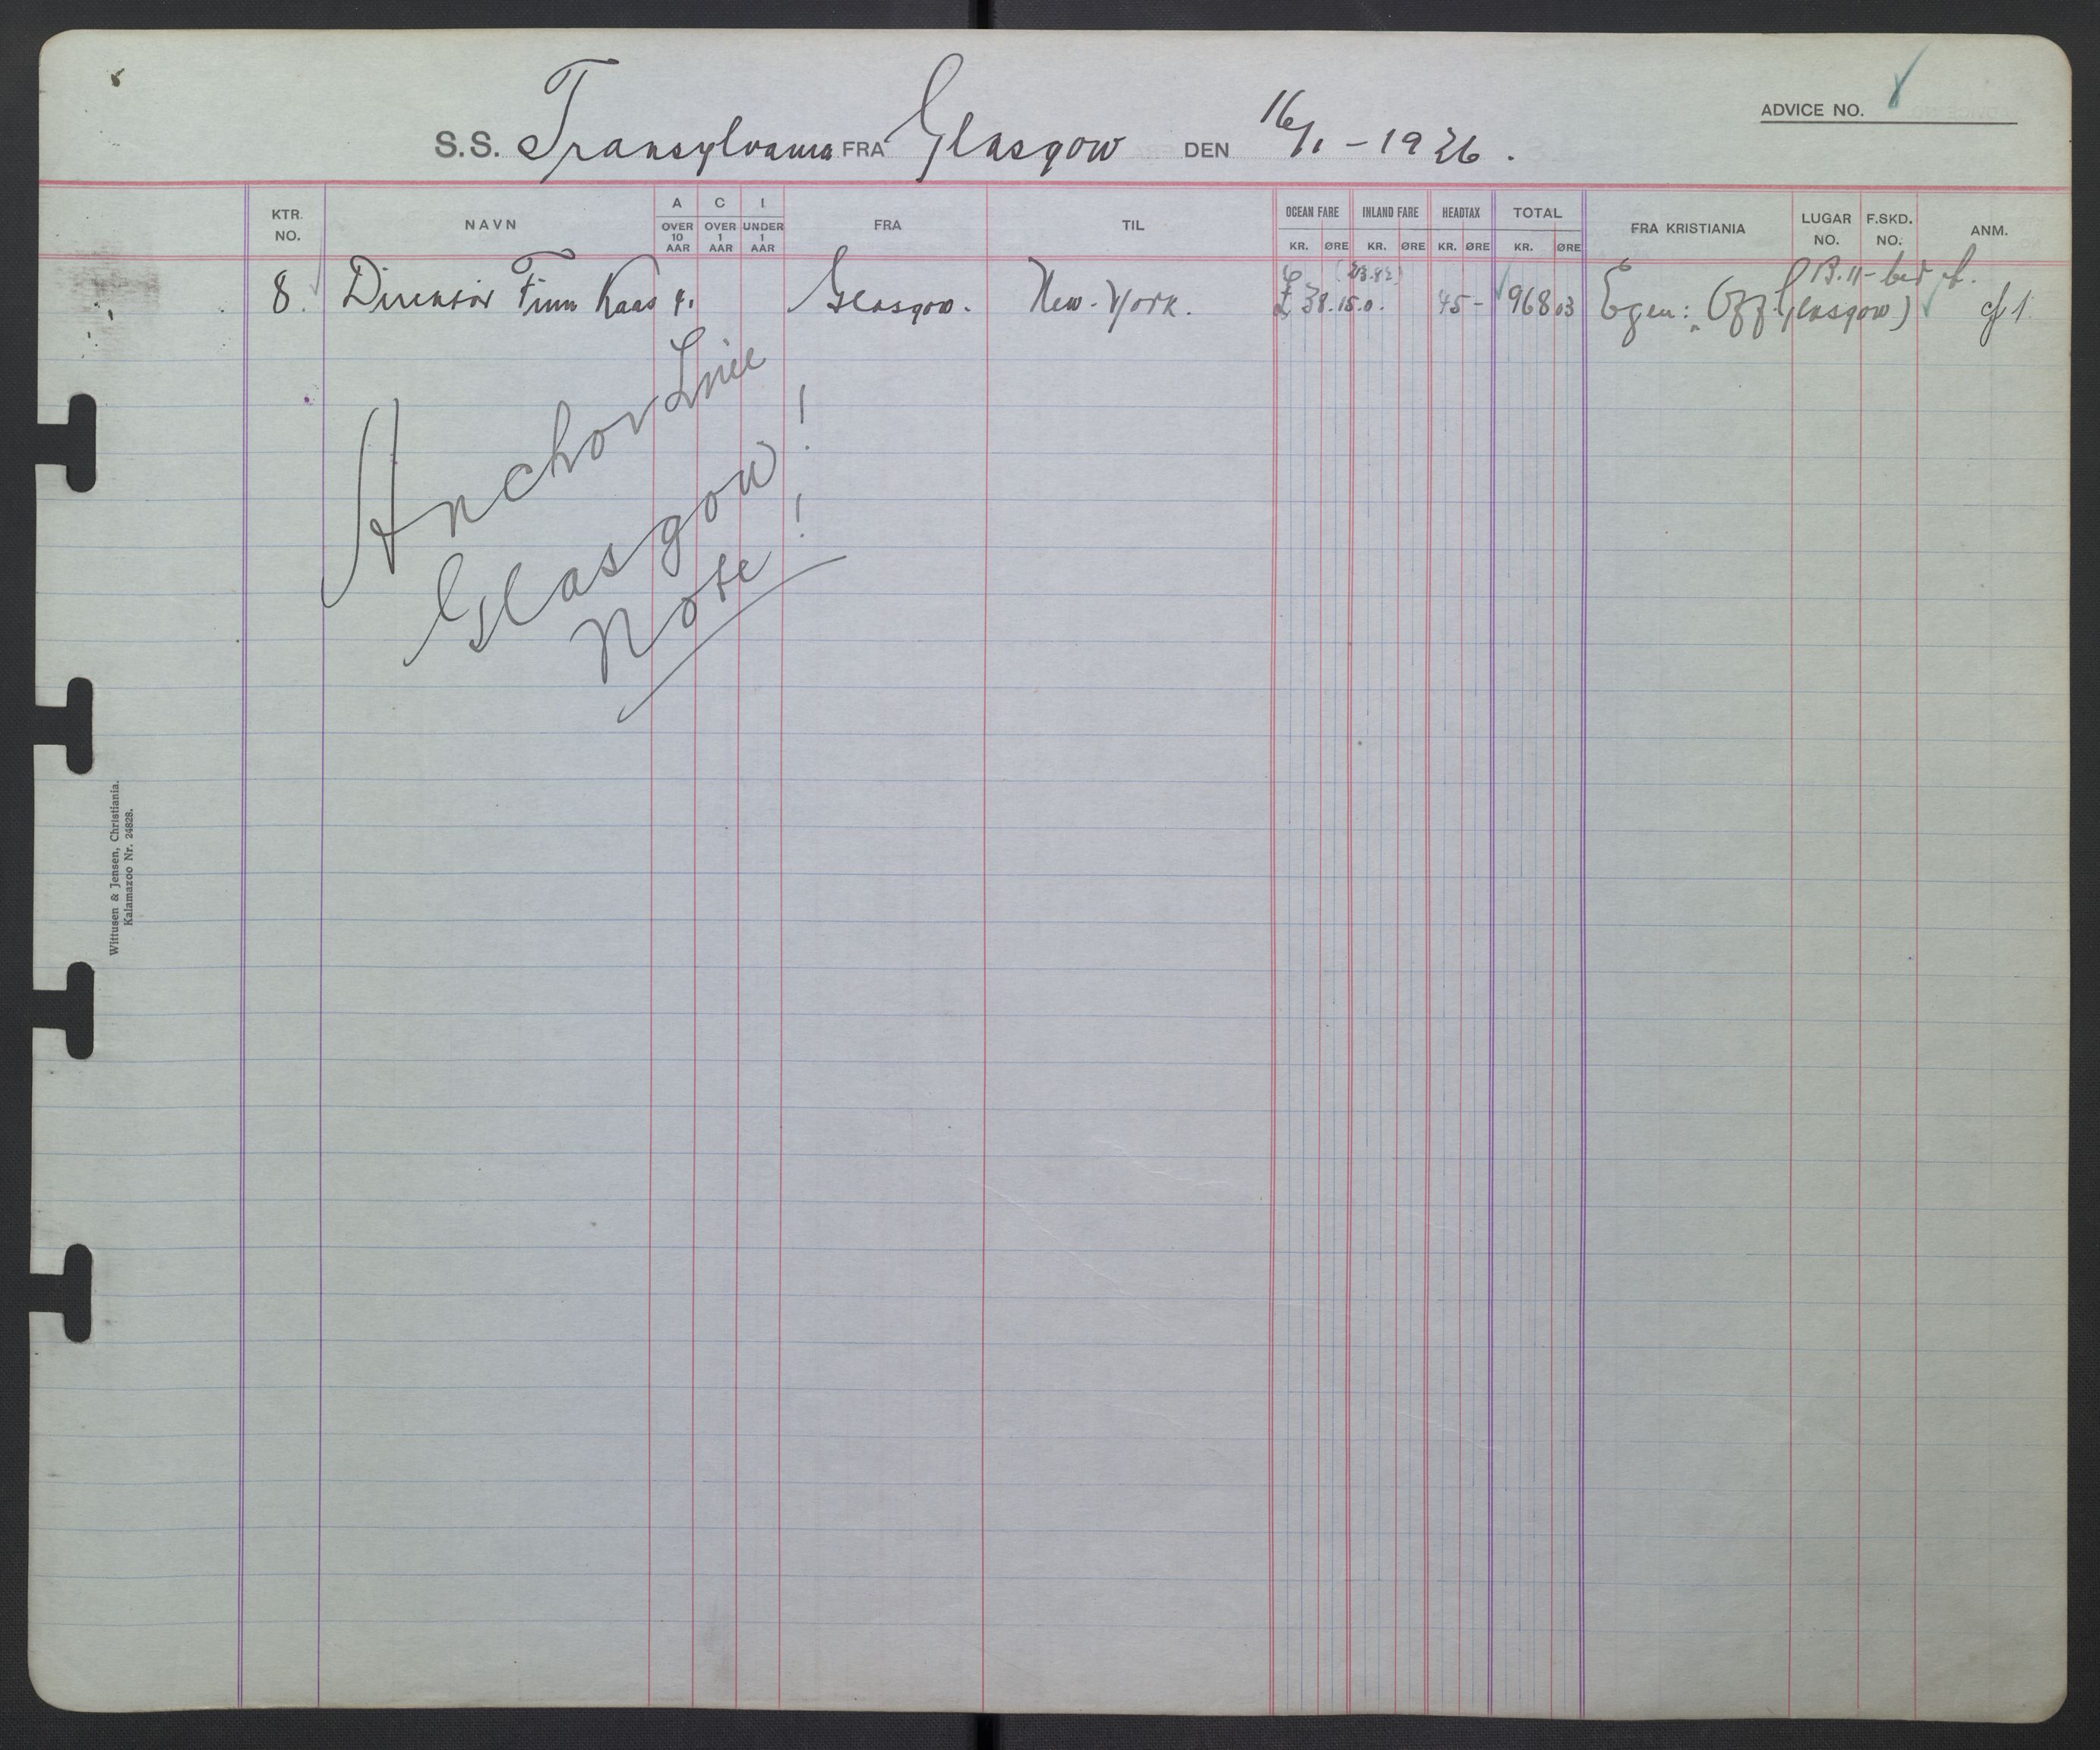 ADVICE NO.
S.S. Transylvania FRA Glasgow DEN 16/1 - 1926.
KTR. NO. NAVN A OVER 10 AAR C OVER 1 AAR I UNDER 1 AAR FRA TIL OCEAN FARE KR. ØRE INLAND FARE KR. ØRE HEADTAX KR. ØRE TOTAL KR. ØRE FRA KRISTIANIA LUGAR NO. F.SKD. NO. ANM.
(23.82)
8. Direktør Finn Kaas 1. Glasgow. New-York. £ 38.15.0. 45- 968 03 Egen: (Off. Glasgow)
Anchor Line
Glasgow!
Note!
Wittusen & Jensen, Christiania.
Kalamazoo Nr. 24828.